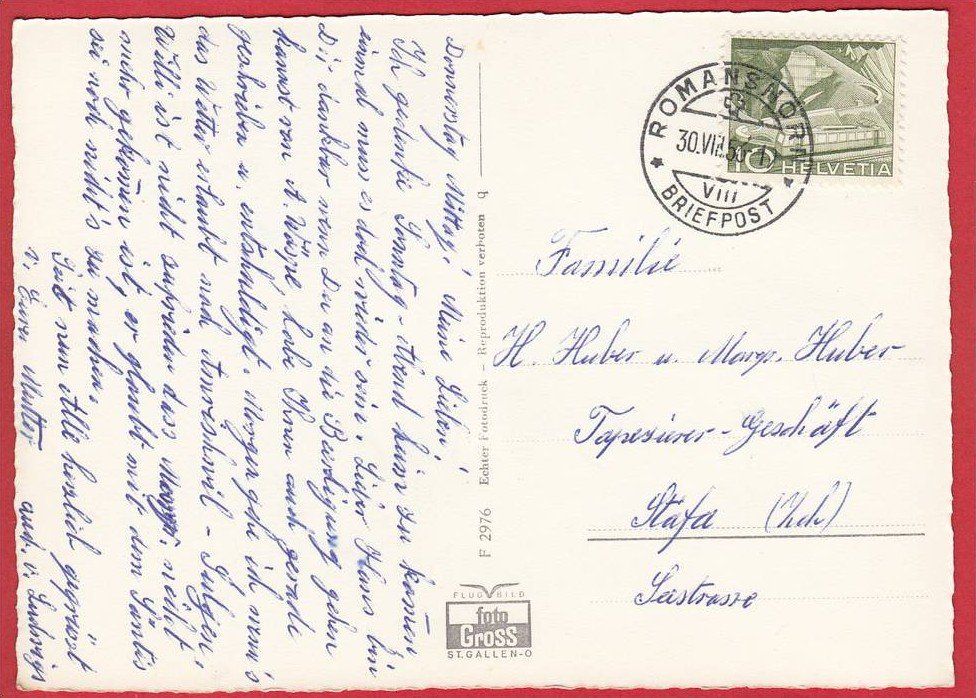 Donnerstag Mittag, Meine Lieben!
Ich gedenke Sonntag-Abend heim zu kommen,
einmal muss es doch wieder sein. Lieber Hans bin
Dir dankbar wenn Du an die Beerdigung gehen
kannst von A. habe Ihnen auch gerade
geschrieben u. entschuldigt. Morgen gehe ich wenn's
das Wetter erlaubt nach - Sulgen,
Willi ist nicht zufrieden dass nicht
mehr gekommen ist, er glaubt mit dem Säntis
sei noch nichts zu machen.
Seid nun Alle herzlich gegrüsst
v. Eurer Mutter auch v. Ludwigs
F 2976 Echter Fotodruck - Reproduktion verboten q
FLUG BILD
foto
Gross
ST. GALLEN-O
ROMANSHORN
30.VIII
VIII
BRIEFPOST
10 HELVETIA
Familie
H. Huber u. Marg. Huber
Tapezierer-Geschäft
Stäfa (Zch)
Seestrasse